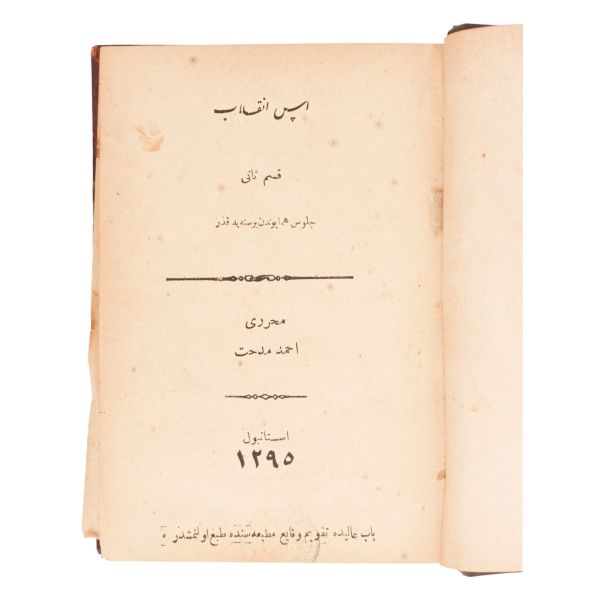 اس انقلاب
قسم ثانی
جلوس همایوندن برسنه یه قدر
محرری
احمد مدحت
استانبول
١٢٩٥
باب عالیده تقویم وقایع مطبعه سنده طبع اولنمشدر